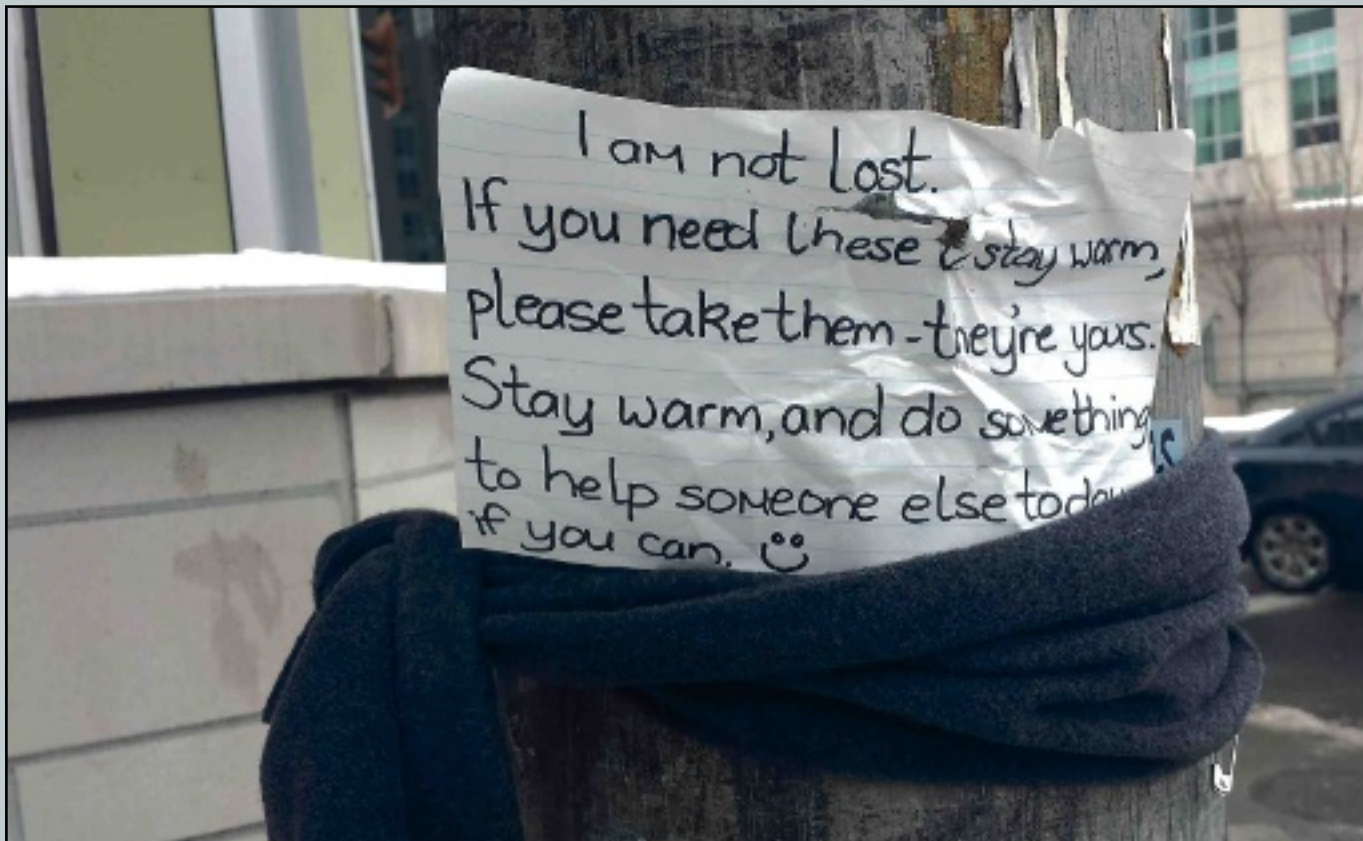 I am not lost.
If you need these t stay warm,
please take them - they're yours.
Stay warm, and do something
to help someone else today
if you can.